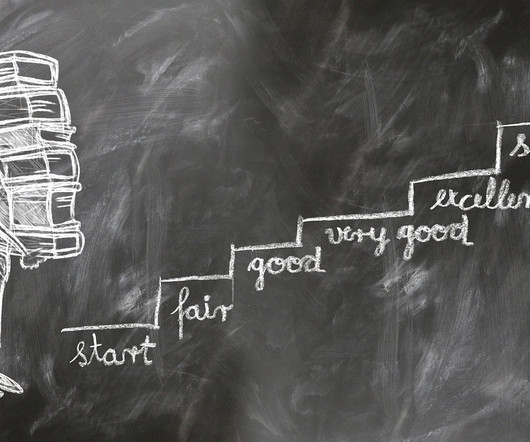 start
fair
good
very good
excellen